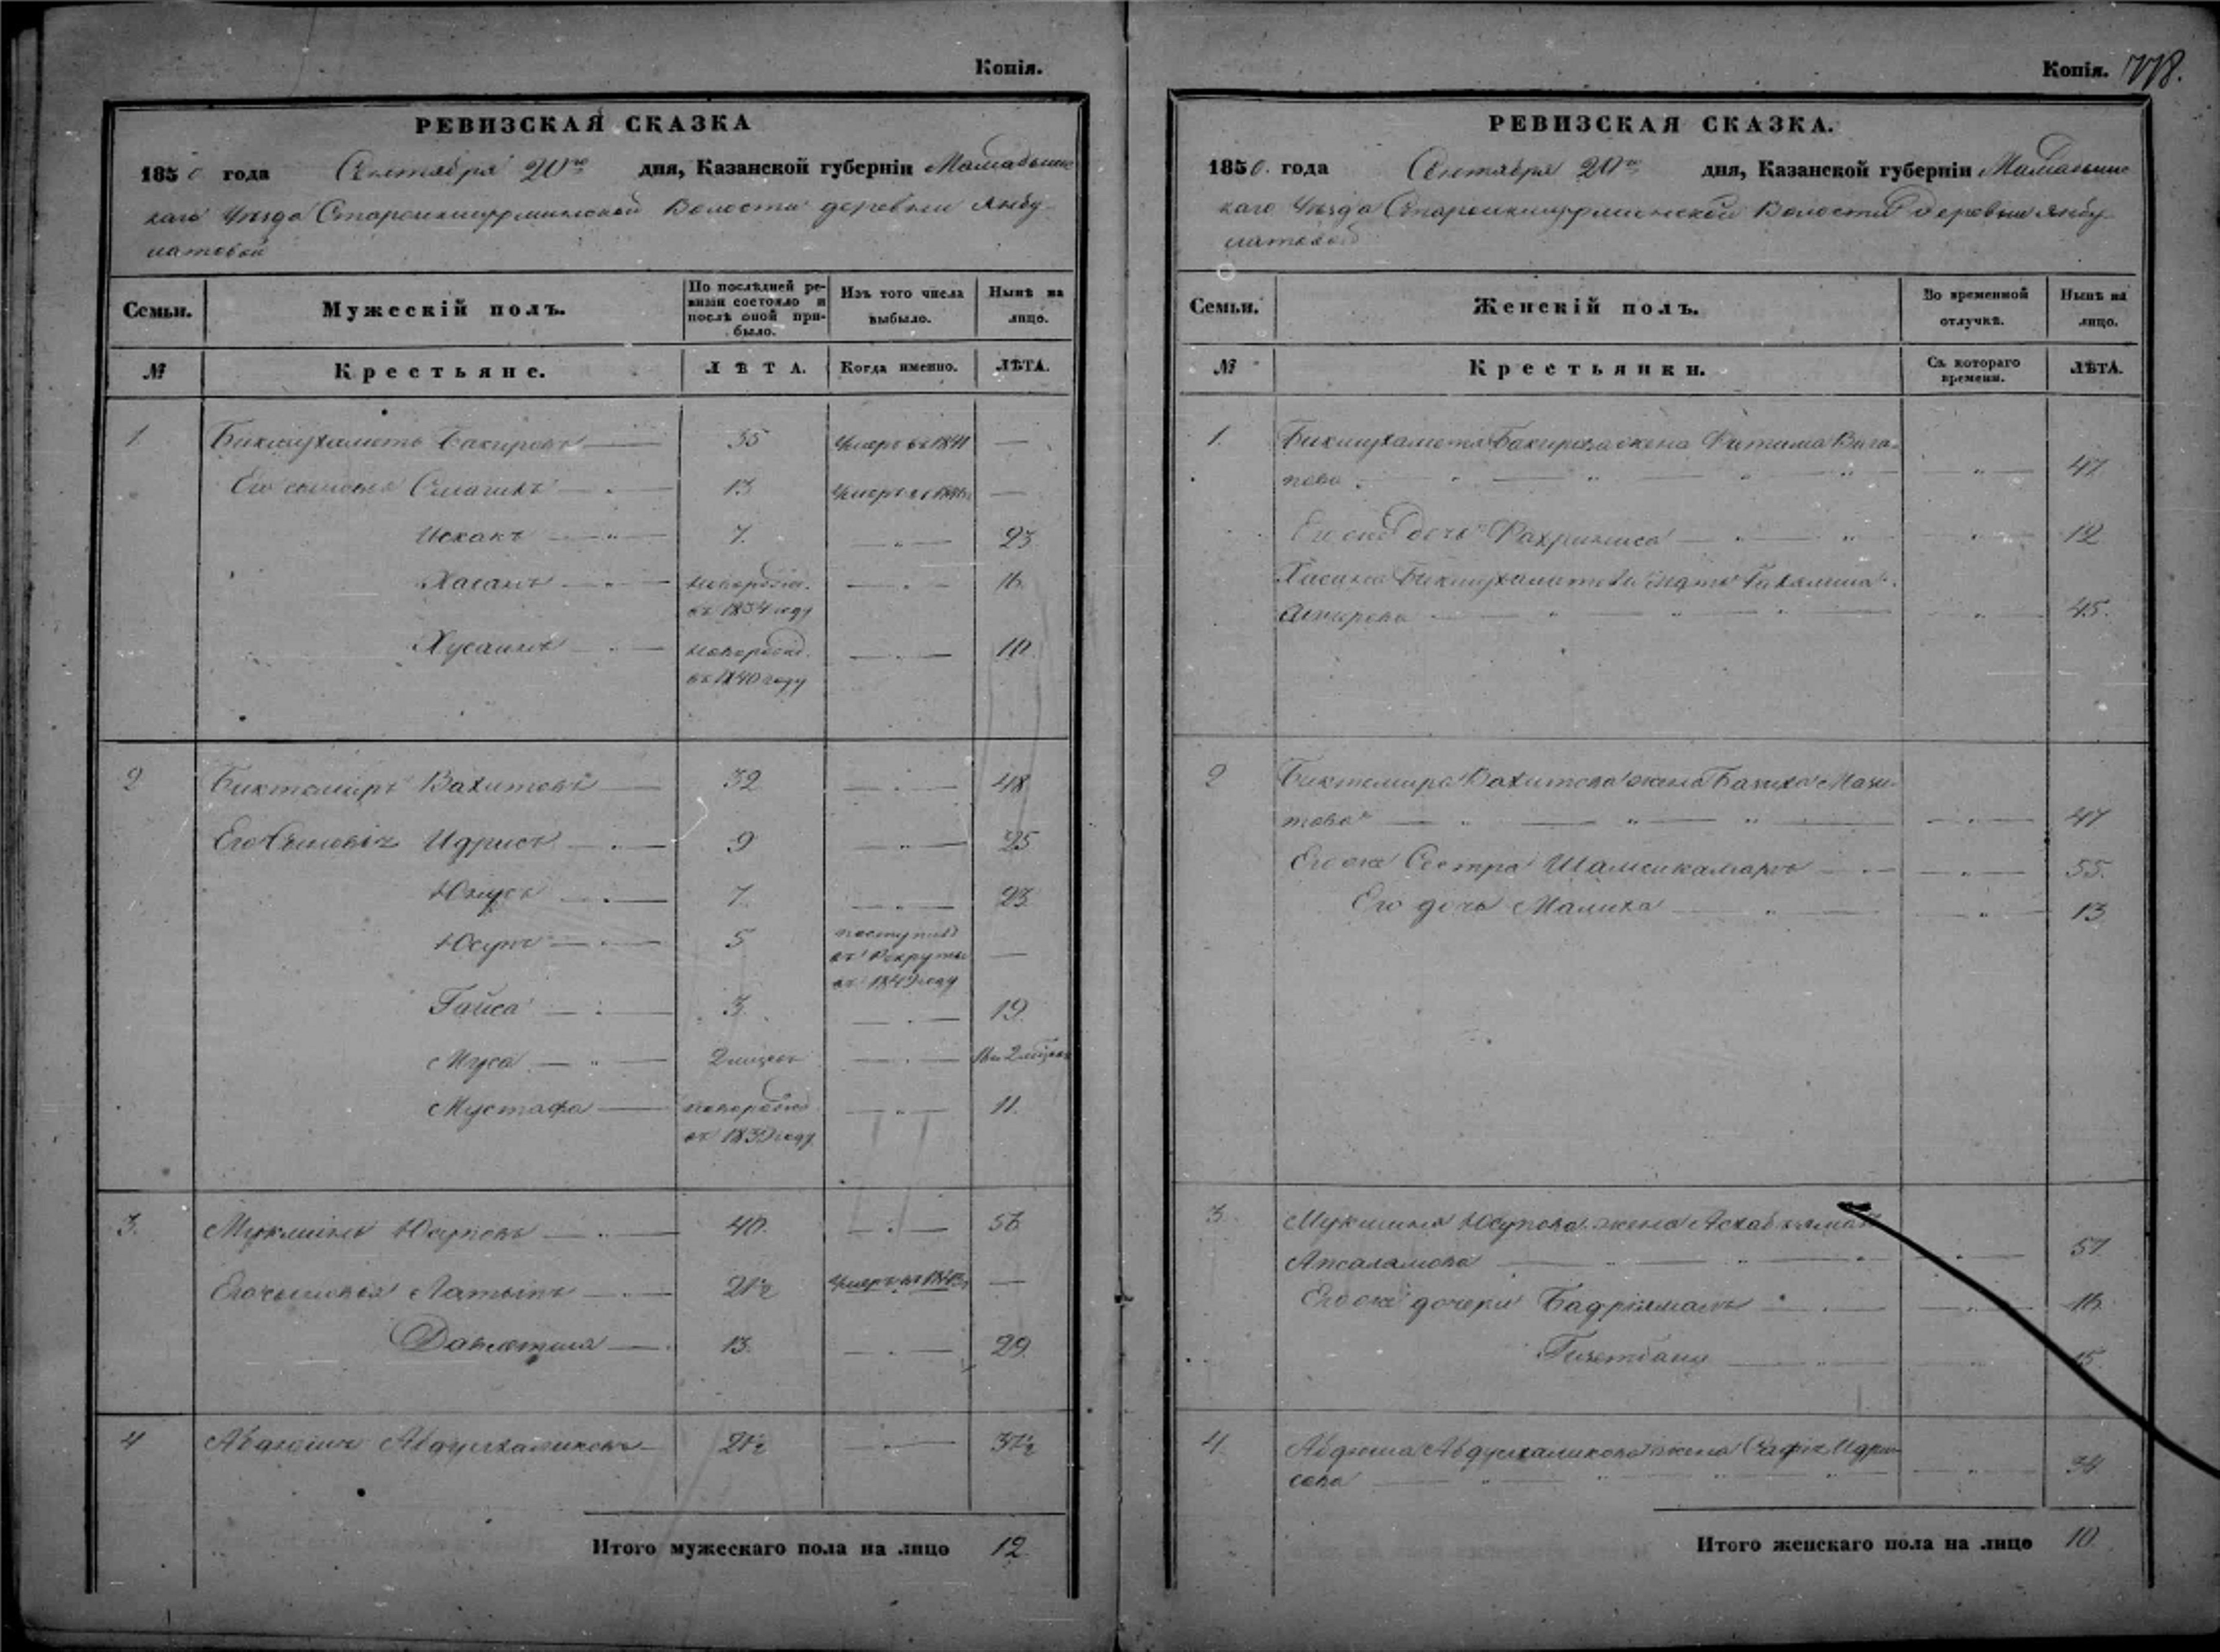 Копія.
РЕВИЗСКАЯ СКАЗКА
1850 года Сентября 20го дня, Казанской губерніи Мамадыш
каго Уѣзда Волости деревни Янбу
латовой
Семьи. Мужескій полъ. По послѣдней ре-
визіи состояло и
послѣ оной при-
было. Изъ того числа
выбыло. Нынѣ на
лицо.
№ Крестьяне. ЛѢТА. Когда именно. ЛѢТА.
1 Бикмухаметъ Бакировъ 35 Умеръ въ 1841 —
Его сыновья 13 Умеръ въ —
Исхакъ 7. — 23
Хасанъ новорожд. — 16.
въ 1834 году
Хусаинъ новорожд. — 10
въ 1840 году
2 Биктемиръ Вахитовъ 32 — 48
Его Сыновья Идрисъ 9 — 25
Юнусъ 7. — 23
Юсупъ 5 поступилъ —
въ Рекруты
въ 1849 году
Гайса 3. — 19.
Муса 2 мѣсец — 16 и 2 мѣсец
Мустафа новорожд — 11.
въ 1839 году
3. Мукминъ Юсуповъ 40. — 56
Его сыновья Латыпъ 21½ Умеръ въ 1843 —
Давлетша 13. — 29.
4 Абдулхаликовъ 21½ — 37½
Итого мужескаго пола на лицо 12.
Копія. 778.
РЕВИЗСКАЯ СКАЗКА.
1850. года Сентября 20го дня, Казанской губерніи Мамадыш
каго Уѣзда Волости деревни Янбу
латовой
Семьи. Женскій полъ. Во временной
отлучкѣ. Нынѣ на
лицо.
№ Крестьянки. Съ котораго
времени. ЛѢТА.
1. Бикмухаметя Бакирова жена Фатима
— 47
Его же дочь Фахриниса — 12
Хасана Бикмухаметова мать
Амирова — 45.
2 Биктемира Вахитова жена Базиха Мази-
това — 47
Его же Сестра Шамсикамаръ — 55.
Его дочь Малиха — 13
3. Мукмина Юсупова жена
Апсалямова — 57
Его же дочери — 16.
— 15.
4. Абдулхаликова жена Сафія Идри
сова — 34
Итого женскаго пола на лицо 10.